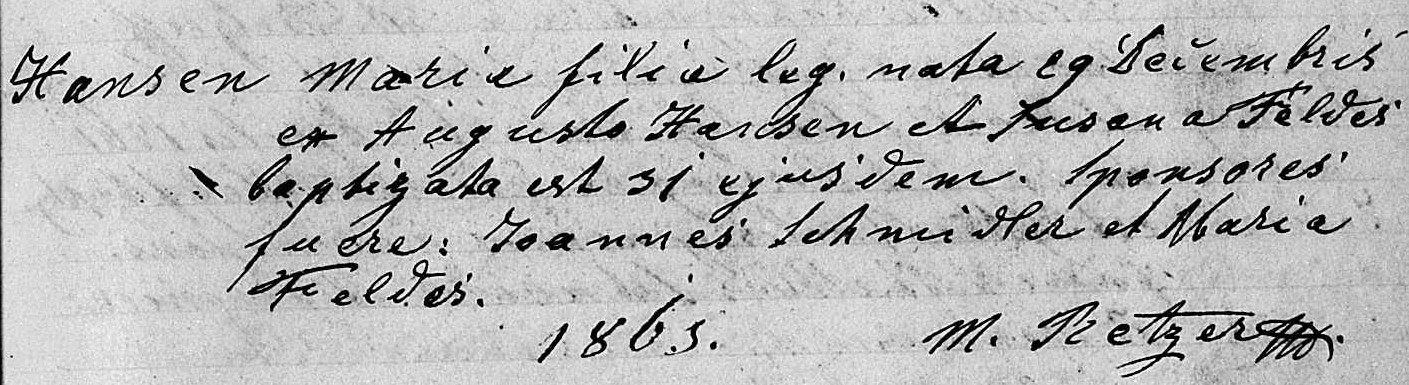 Hansen Maria filia leg. nata 29 Decembris
ex Augusto Hansen et Susana Feldes
baptizata est 31 ejusdem. Sponsores
fuere: Joannes Schmidler et Maria
Feldes.
1863. M. Retzer